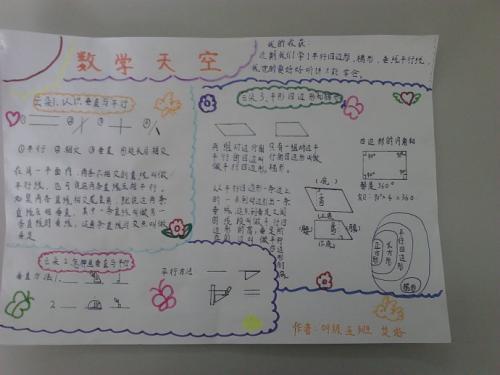 数学天空
我的收获:
这期我们学了平行四边形、梯形、垂线平行线,
云朵1.认识垂直与平行
①平行 ②相交 ③垂直 ④延长后相交
在同一平面内,两条不相交的直线叫做
平行线,也可以说两条直线互相平行。
如果两条直线相交成直角,就说这两条
直线互相垂直,其中一条直线叫做另一
条直线的垂线,这两条直线的交点叫做
垂足
云朵2.怎样画垂直与平行
垂直方法:1.
2
平行方法
云朵3.平形四边形和梯形
两组对边分别
平行的四边形叫
做平行四边形
只有一组对边平
行的四边形叫做
梯形。
从平行四边形一条边上
的一点到对边引一条
垂线,这点到垂足之间
的线段叫做平行四
边形的高,垂足所
(底)
高
四边形的内角和
90° 90°
90° 90°
都是360°
平行四边形
长方形
正方形
梯形
作者:四年级五班